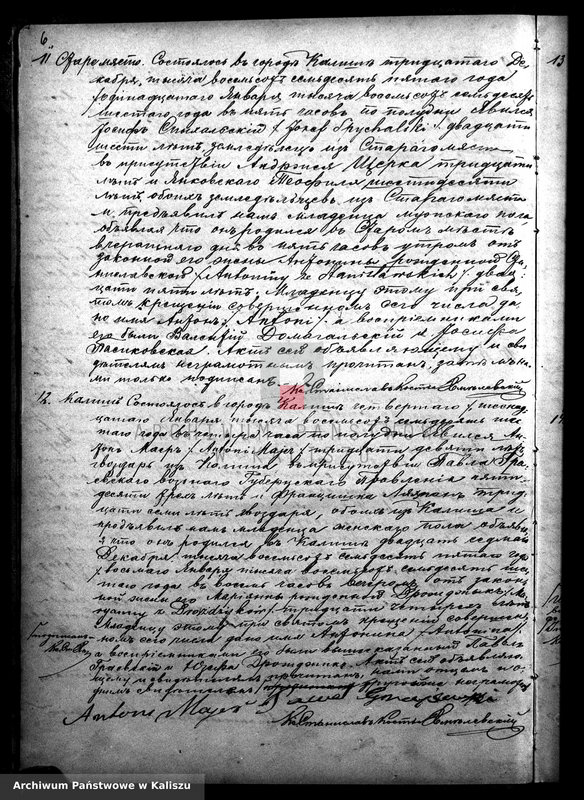 6
11 Старомясто. Состоялось въ городѣ Калишѣ тридцатаго Де-
кабря, тысяча восемьсотъ семьдесятъ пятаго года
/одинадцатаго Января тысяча восемьсотъ семьдесятъ
шестаго года въ пять часовъ по полудни. Явился
Іосифъ Спыхальскій /Józef Spychalski/ двадцати
шести лѣтъ, земледѣлецъ изъ Старагомяста
въ присутствіи Андржея Щерка тридцати
лѣтъ и Янковскаго Теофиля шестидесяти
лѣтъ обоихъ земледѣльцевъ изъ Старагомяста
и предъявилъ намъ младенца мужескаго пола
объявляя что онъ родился въ Старомъ мѣстѣ
вчерашняго дня въ пять часовъ утромъ отъ
законной его жены Антонины рожденной Ста-
ниславской /Antoniny z Stanisławskich/ двад-
цати пяти лѣтъ. Младенцу этому при свя-
томъ крещеніи совершенномъ сего числа да-
но имя Антонъ /Antoni/ а воспріемниками
его были Валентій Домагальскій и Іосифа
Пасиковская. Актъ сей объявляющему и сви-
дѣтелямъ неграмотнымъ прочитанъ, затѣмъ на-
ми только подписанъ.
Кс. Станиславъ Костка
12. Калишъ Состоялось въ городѣ Калишѣ четвертаго /шестнад-
цатаго Января тысяча восемьсотъ семьдесятъ шес-
таго года въ четыре часа по полудни. Явился Ан-
тонъ Маеръ /Antoni Majer/ тридцати девяти лѣтъ
гвоздарь изъ Калиша въ присутствіи Павла Гра-
евскаго вознаго Губернскаго Правленія пяти-
десяти трехъ лѣтъ и Францишка тридц-
цати семи лѣтъ гвоздаря, обоихъ изъ Калиша и
предъявилъ намъ младенца женскаго пола объявля-
я что онъ родился въ Калишѣ двадцать седьмаго
Декабря тысяча восемьсотъ семьдесятъ пятаго года
/восьмаго Января тысяча восемьсотъ семьдесятъ шес-
таго года въ восемь часовъ вечеромъ отъ закон-
ной жены его Маріанны рожденной
тридцати четырехъ лѣтъ.
Младенцу этому при святомъ крещеніи совершен-
номъ сего числа дано имя Антонина /Antonina/
а воспріемниками его были вышесказанный Павелъ
Граевскій и Юзефа Актъ сей объявляю-
щему и свидѣтелямъ прочитанъ, нами отцемъ и
Antoni Majer
Кс. Станиславъ Костка
13
ARCHIWUM PAŃSTWOWE
W KALISZU
Archiwum Państwowe w Kaliszu